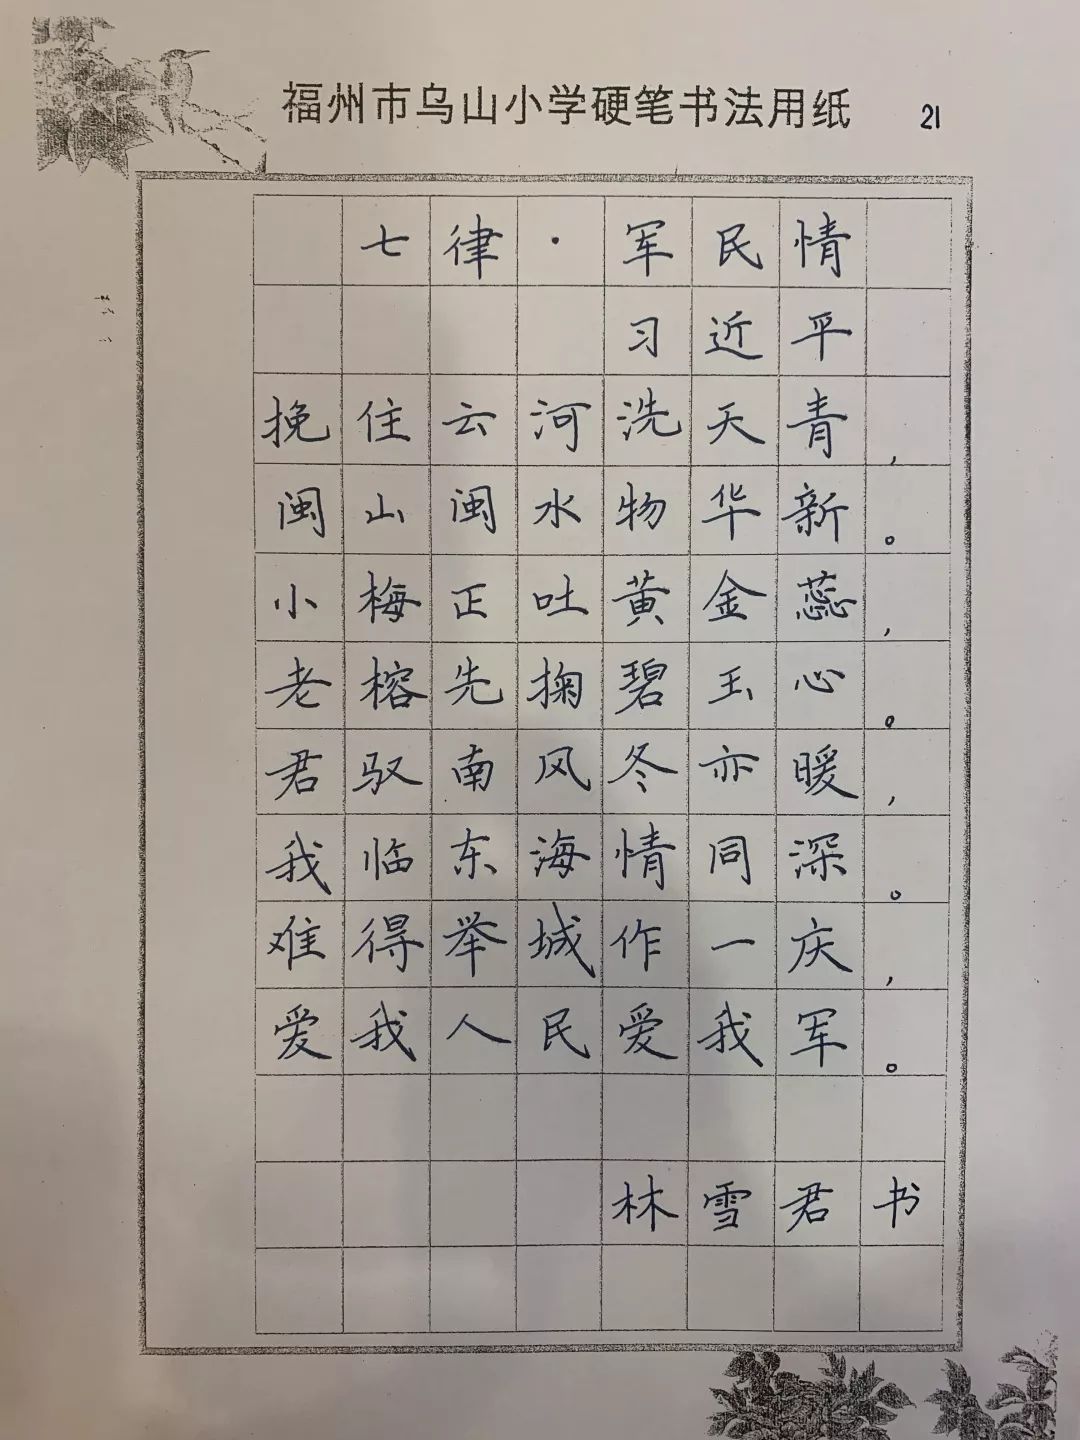 福州市乌山小学硬笔书法用纸 21
七律·军民情
习近平
挽住云河洗天青，
闽山闽水物华新。
小梅正吐黄金蕊，
老榕先掬碧玉心。
君驭南风冬亦暖，
我临东海情同深。
难得举城作一庆，
爱我人民爱我军。
林雪君书